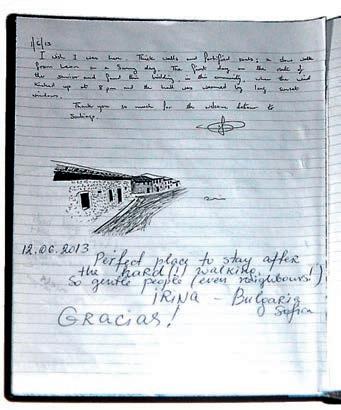 1/6/13
I wish I was here. Thick walls and fortified seats; a short walk
from here on a Sunny day. The first day on the route of
the and found this building in this community, when the wind
kicked up at 8 pm and the hall was warmed by long sunset
windows.
Thank you so much for the welcome before to
Santiago.
12.06.2013
Perfect place to stay after
the hard(!) walking
So gentle people (even neighbours!)
IRINA - Bulgaria
Sofia
Gracias!